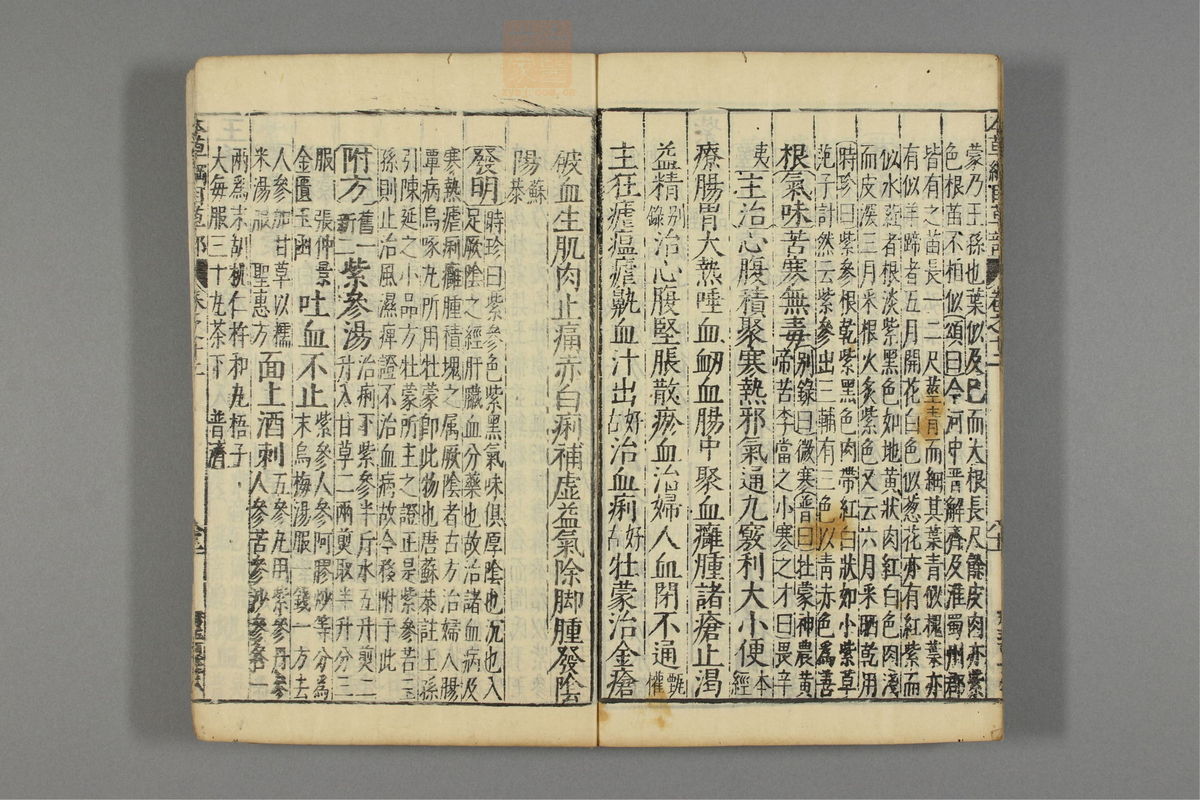 蒙乃王孫也葉似及巳而大根長尺餘皮肉亦紫
色根苗不相似頌曰今河中晋解齊及淮蜀州郡
皆有之苗長一二尺莖青而細其葉青似槐葉亦
有似羊蹄者五月開花白色似葱花亦有紅紫而
似水葒者根淡紫黑色如地黄狀肉紅白色肉淺
而皮深三月采根火炙紫色又云六月采晒乾用
時珍曰紫參根乾紫黑色肉帶紅白狀如小紫草
范子計然云紫參出三輔有三色以青赤色爲善
根氣味苦寒無毒别録曰微寒普曰牡蒙神農黄
帝苦李當之小寒之才曰畏辛
夷主治心腹積聚寒熱邪氣通九竅利大小便本
經
療腸胃大熱唾血衂血腸中聚血癰腫諸瘡止渴
益精别
録治心腹堅脹散瘀血治婦人血閉不通甄
權
主狂瘧瘟瘧鼽血汁出好
古治血痢好
古牡蒙治金瘡
破血生肌肉止痛赤白痢補虚益氣除脚腫發陰
陽蘇
恭
發明時珍曰紫參色紫黑氣味俱厚陰也沉也入
足厥陰之經肝臟血分藥也故治諸血病及
寒熱瘧痢癰腫積塊之属厥陰者古方治婦人腸
覃病烏啄丸所用牡蒙即此物也唐蘇恭註王孫
引陳延之小品方牡蒙所主之證正是紫參若王
孫則止治風濕痺證不治血病故今移附于此
附方舊一
新二紫參湯治痢下紫參半斤水五升煎二
升入甘草二兩煎取半升分三
服 張仲景
金匱玉函吐血不止紫參人參阿膠炒等分爲
末烏梅湯服一錢一方去
人參加甘草以糯
米湯服 聖惠方面上酒刺五參丸用紫參丹參
人參苦參沙參各一
兩爲末胡桃仁杵和丸梧子
大每服三十丸茶下 普濟